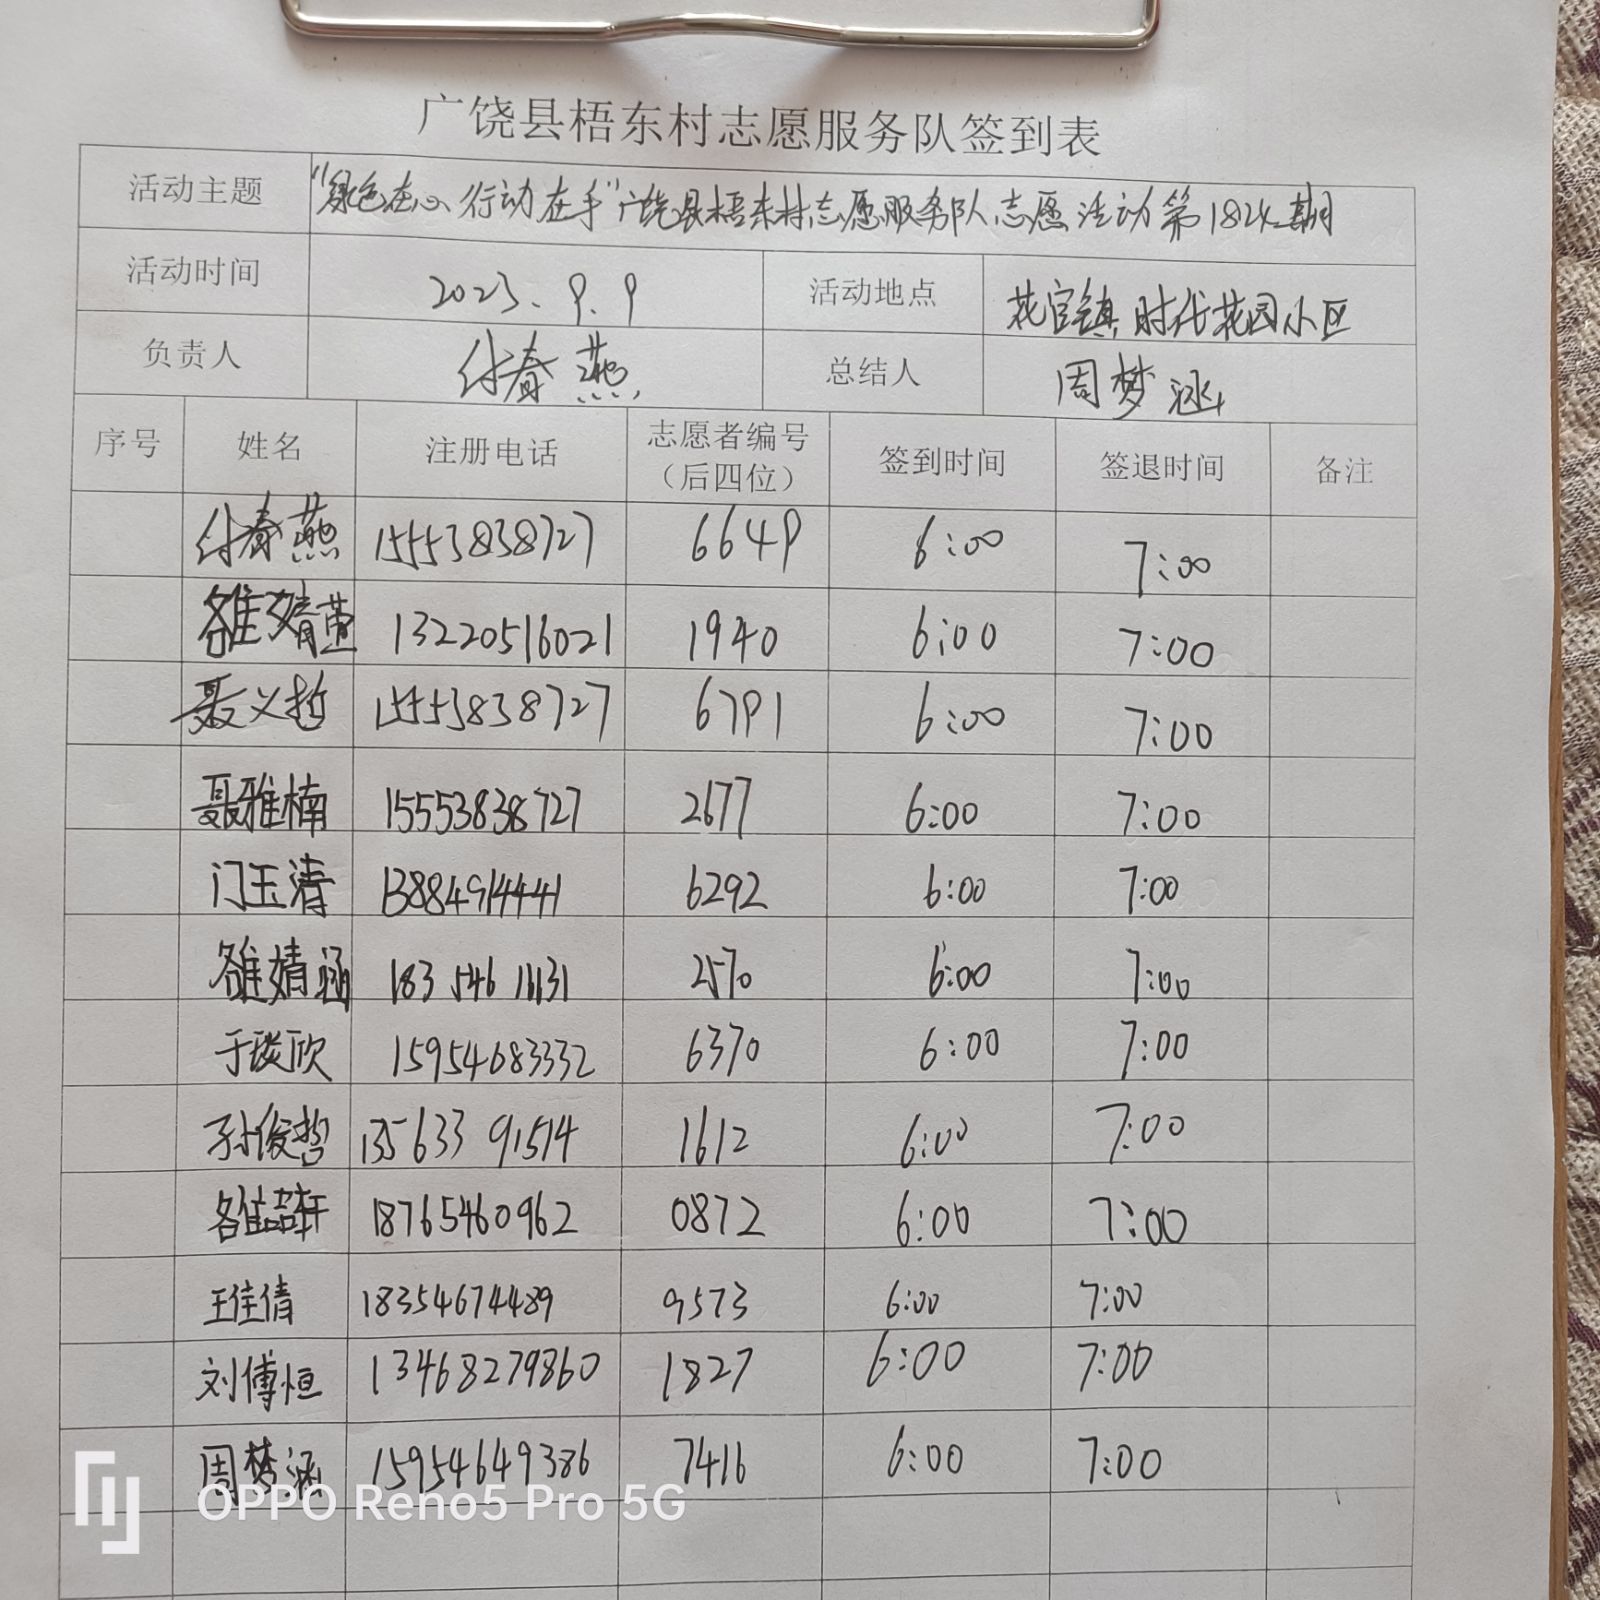 广饶县梧东村志愿服务队签到表
活动主题 "绿色在心、行动在手"广饶县梧东村志愿服务队志愿活动第182期
活动时间 2023.9.9 活动地点 花官镇时代花园小区
负责人 付春燕 总结人 周梦涵
序号 姓名 注册电话 志愿者编号（后四位） 签到时间 签退时间 备注
付春燕 15553838727 6649 6:00 7:00
13220516021 1940 6:00 7:00
聂义哲 15553838727 6791 6:00 7:00
聂雅楠 15553838727 2677 6:00 7:00
门玉清 13884914441 6292 6:00 7:00
雒婧涵 183 546 11131 2570 6:00 7:00
于琰欣 15954683332 6370 6:00 7:00
孙俊哲 135633 91514 1612 6:00 7:00
18765460962 0872 6:00 7:00
王佳倩 18354674489 9573 6:00 7:00
刘傅恒 13468279860 1827 6:00 7:00
周梦涵 15954649386 7416 6:00 7:00
OPPO Reno5 Pro 5G